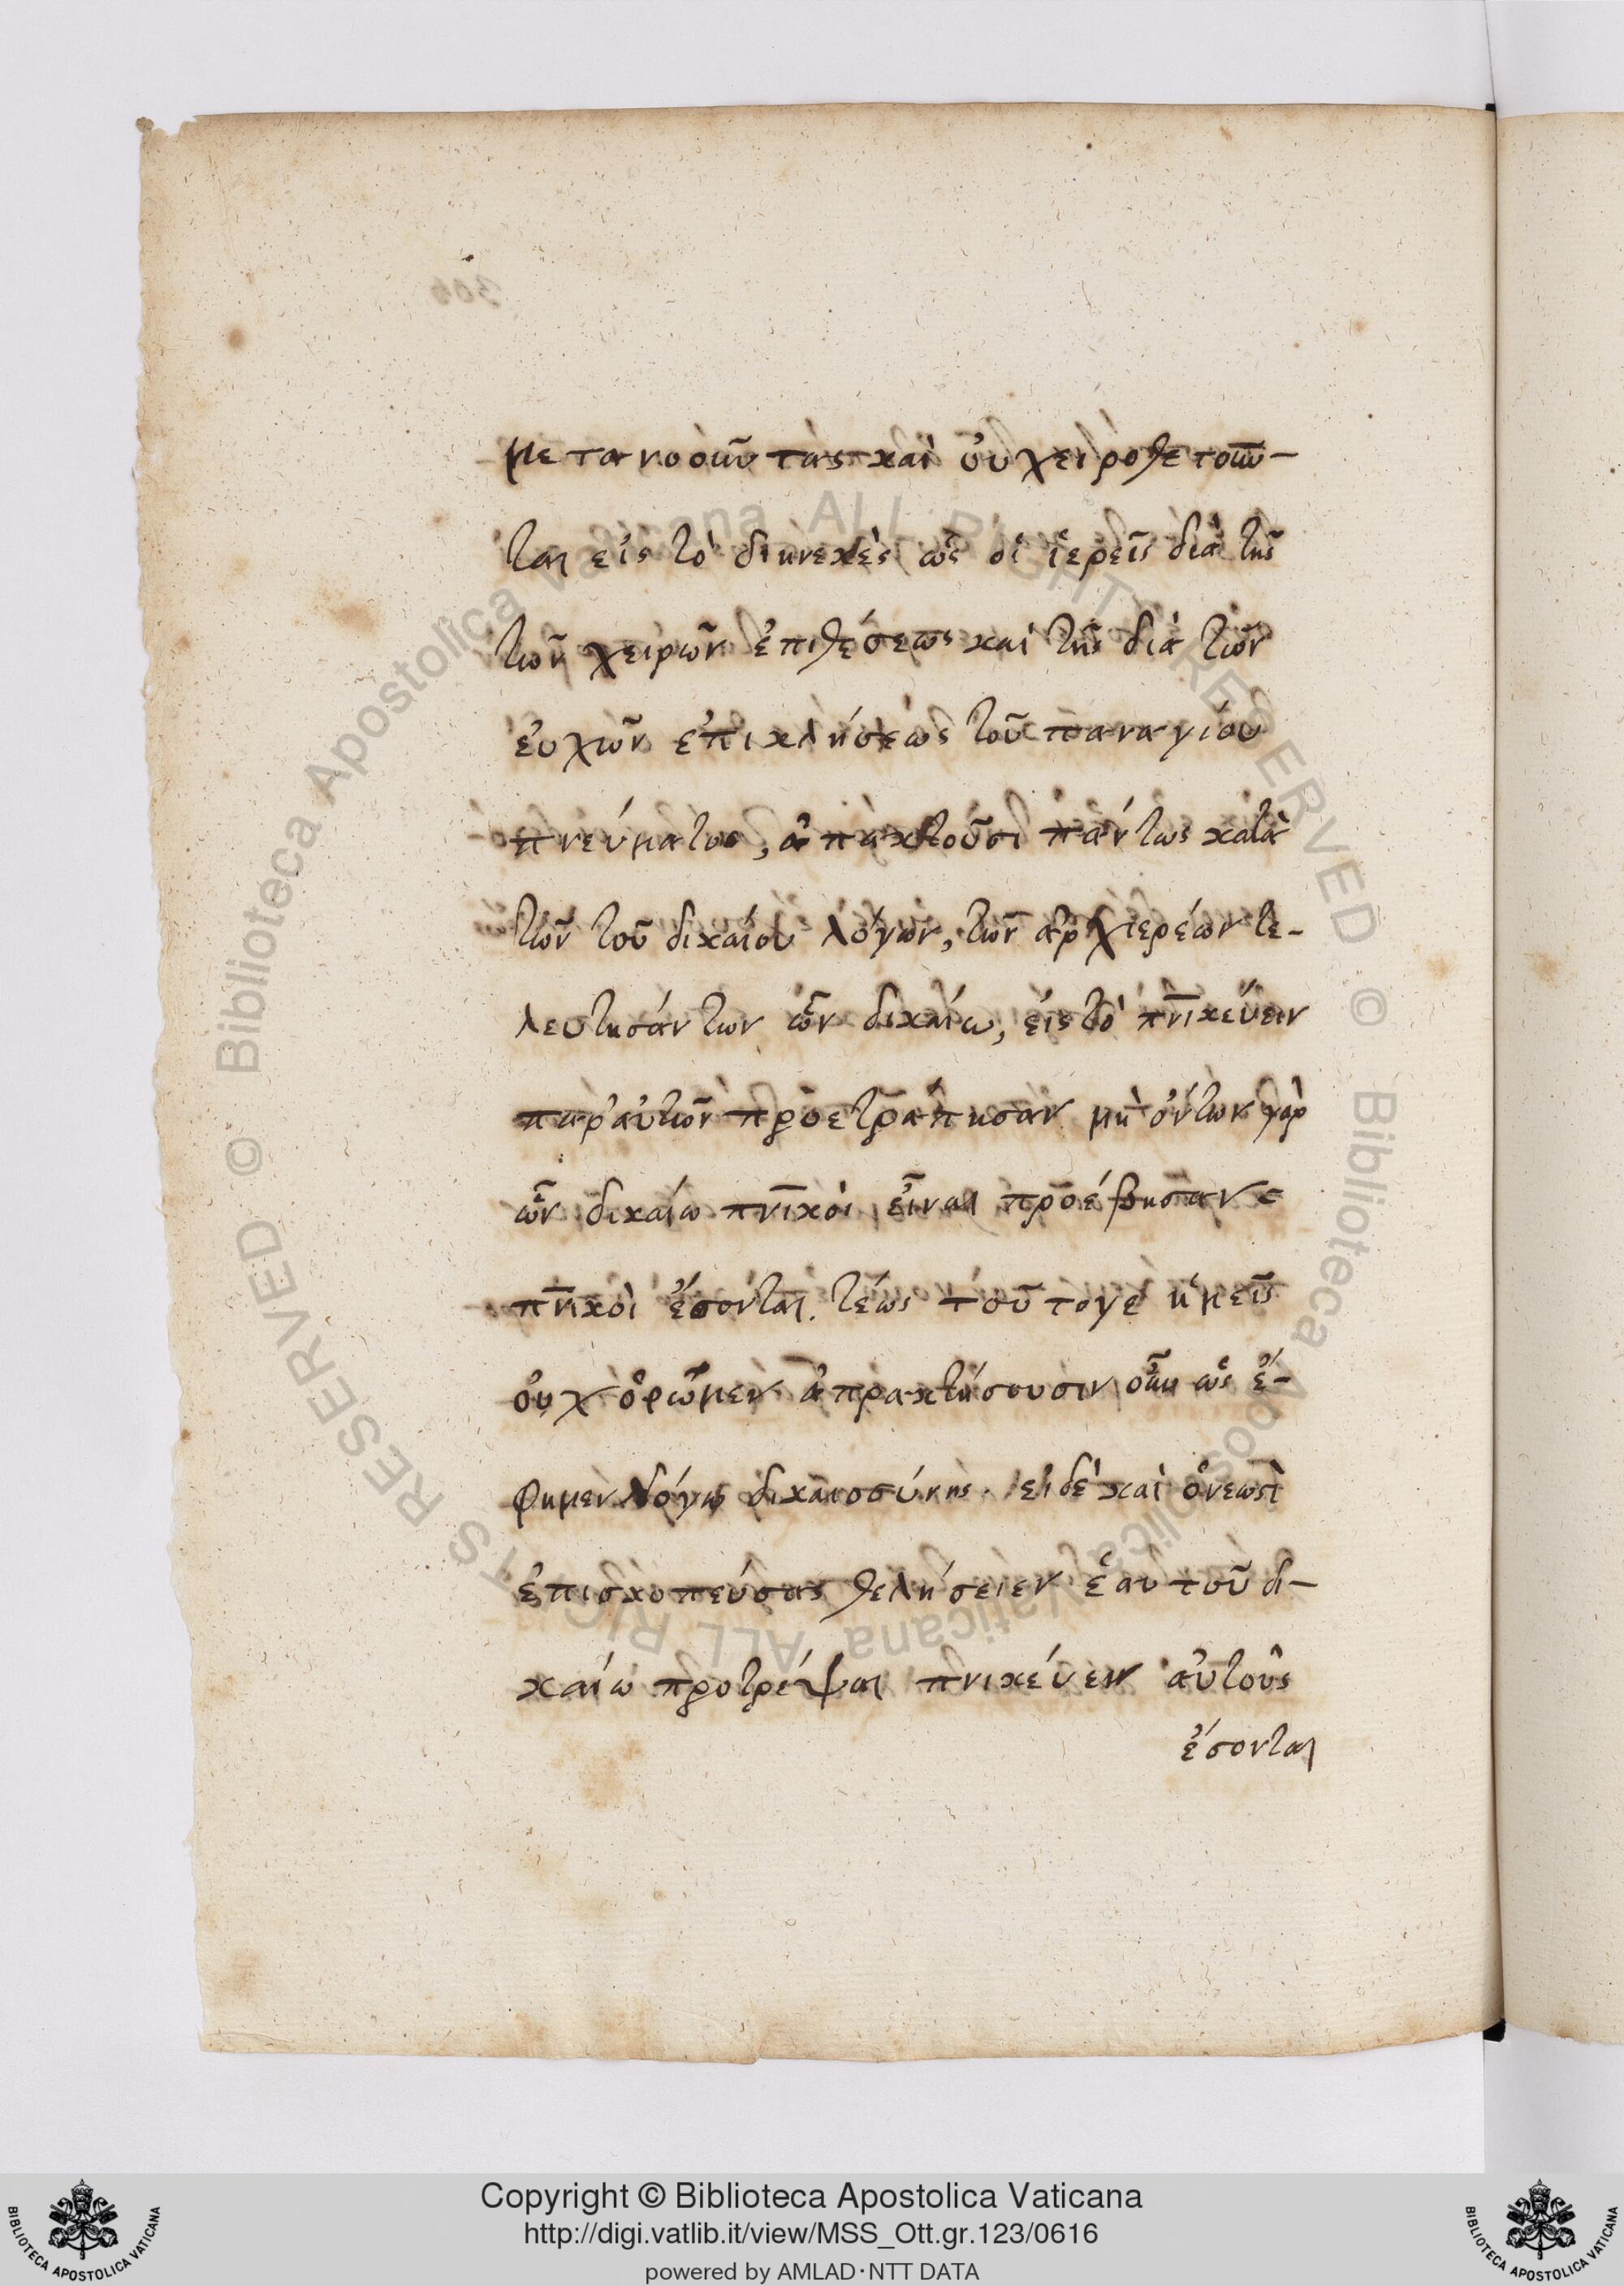 μετανοοῦντας καὶ οὐ χειροθετοῦν-
ται εἰς τὸ διηνεχὲς ὡς οἱ ἱερεῖς διὰ τῆς
τῶν χειρῶν ἐπιθέσεως καὶ τῆς διὰ τῶν
εὐχῶν ἐπικλήσεως τοῦ παναγίου
πνεύματος, ἀπρακτοῦσι πάντως κατὰ
τὸν τοῦ δικαίου λόγον, τῶν ἀρχιερέων τε-
λευτησάντων ὧν δικαίω, εἰς τὸ πν̅ικεύειν
παρ' αὐτῶν προετράπησαν μὴ ὄντων γὰρ
ὧν δικαίω πν̅ικοὶ εἶναι προέβησαν
πν̅ικοὶ ἔσονται. τέως τοῦτο γε ἡμεῖς
οὐχ ὁρῶμεν ἀπρακτήσουσιν οὖν ὡς ἔ-
φημεν λόγω δικαιοσύνης. εἰ δὲ καὶ ὁ νεωστὶ
ἐπισκοπεύσας θελήσειεν ἑαυτοῦ δι-
καίω προτρέψαι πνικεύειν αὐτοὺς
ἔσονται
Copyright © Biblioteca Apostolica Vaticana
http://digi.vatlib.it/view/MSS_Ott.gr.123/0616
powered by AMLAD·NTT DATA